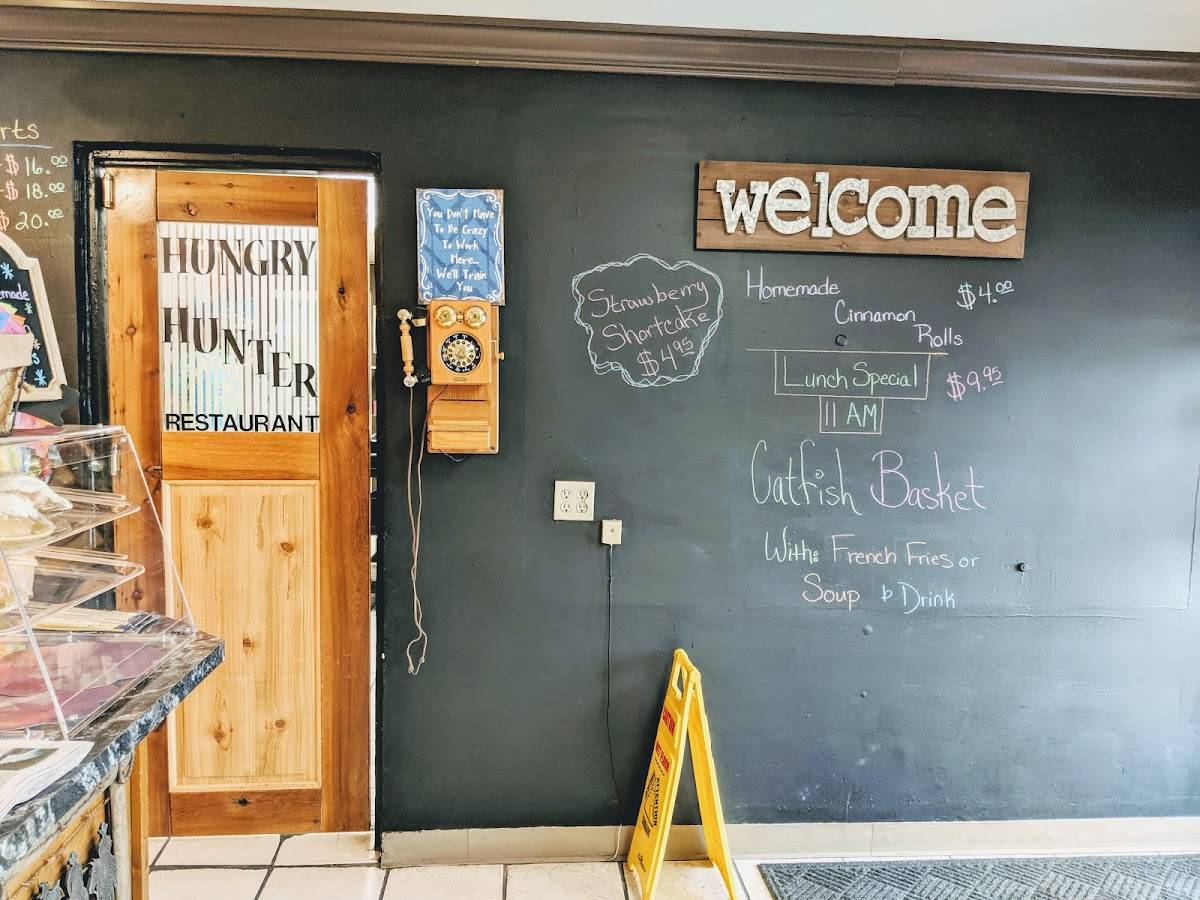 rts
$16.00
$18.00
$20.00
HUNGRY
HUNTER
RESTAURANT
You Don't Have
To Be Crazy
To Work
Here...
We'll Train
You
welcome
Strawberry
Shortcake
$4.95
Homemade $4.00
Cinnamon
Rolls
Lunch Special $9.95
11 AM
Catfish Basket
With: French Fries or
Soup & Drink